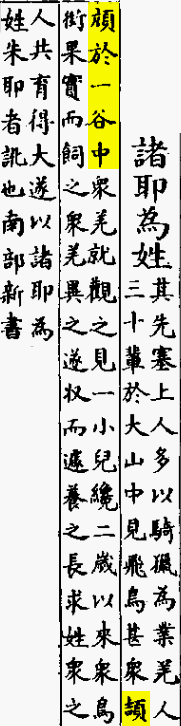 諸耶為姓
其先塞上人多以騎獵為業羌人
三十輩於大山中見飛鳥甚衆頡
頏於一谷中衆羌就觀之見一小兒纔二歲以來衆鳥
銜果實而飼之衆羌異之遂収而遞養之長求姓衆之
人共育得大遂以諸耶為
姓朱耶者訛也南部新書